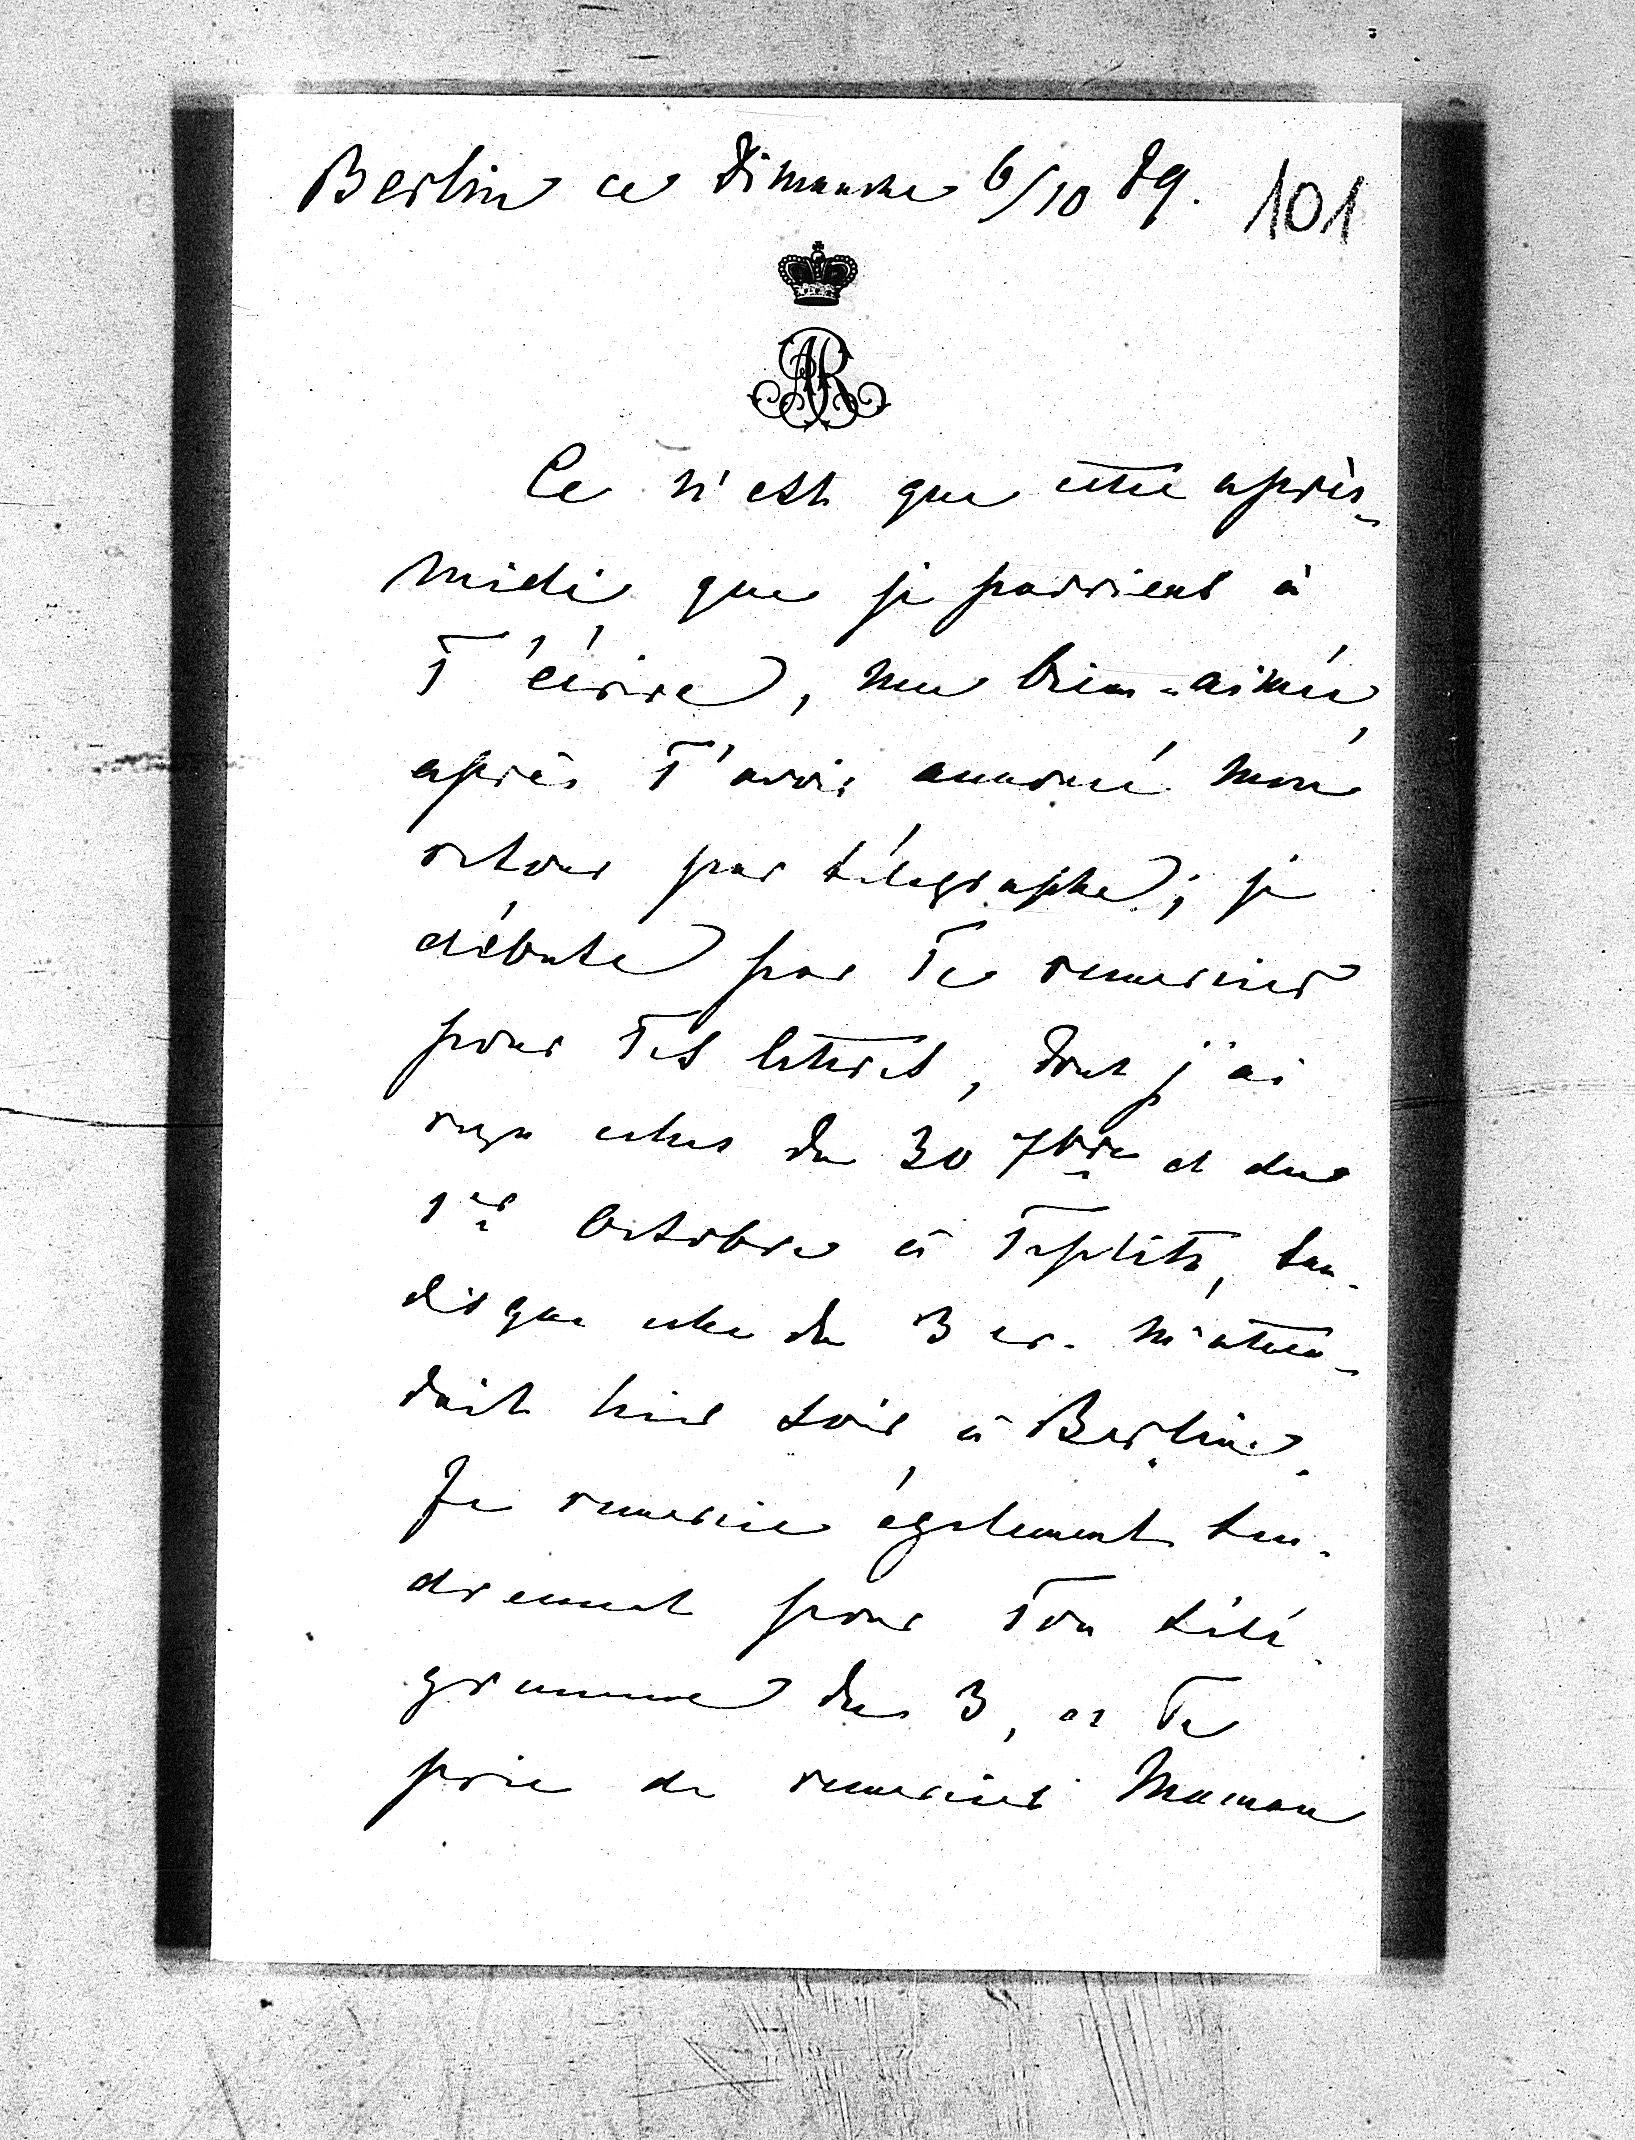 Berlin ce Dimanche 6/10 89. 101
AR
Ce n'est que cette après-
midi que je parviens à
T'écrire, ma bien-aimée,
après T'avoir annoncé mon
retour par télégraphe; je
débute par Te remercier
pour Tes lettres, dont j'ai
reçu celles du 30 7bre et du
1er Octobre à Teplitz, tan-
disque celle du 3 cr. m'atten-
dait hier soir à Berlin.
Je remercie également ten-
drement pour Ton télé-
gramme du 3, et Te
prie de remercier Maman